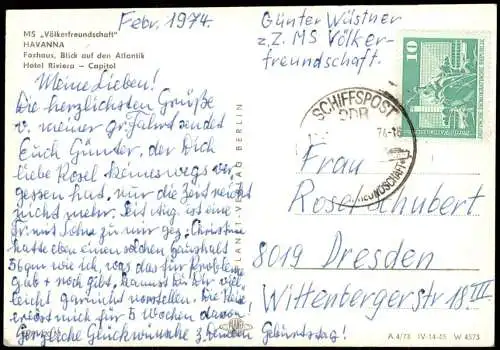 Febr. 1974.
MS „Völkerfreundschaft"
HAVANNA
Foxhaus, Blick auf den Atlantik
Hotel Riviera — Capitol
Meine Lieben!
Die herzlichsten Grüße
v. meiner gr. Fahrt sendet
Euch Günter, der Dich
liebe Rosel keineswegs ver-
gessen hat, nur die Zeit reicht
nicht mehr. Seit ist eine
gr. mit Sohn zu nur gez. Christine
hatte eben einen solchen Haushalt
wie ich, was das für Probleme
gab + noch gibt, kannst Du Dir viel-
leicht garnicht vorstellen. Die Reise
erlöst mich für 5 Wochen davon
Herzliche Glückwünsche z. beiden Geburtstag!
PLANET-VERLAG BERLIN
Günter Wüstner
z.Z. MS Völker-
freundschaft.
10
SCHIFFSPOST
DDR
Frau
Rosel Schubert
8019 Dresden
Wittenbergerstr 18 III
A 4/73 IV-14-45 W 4573